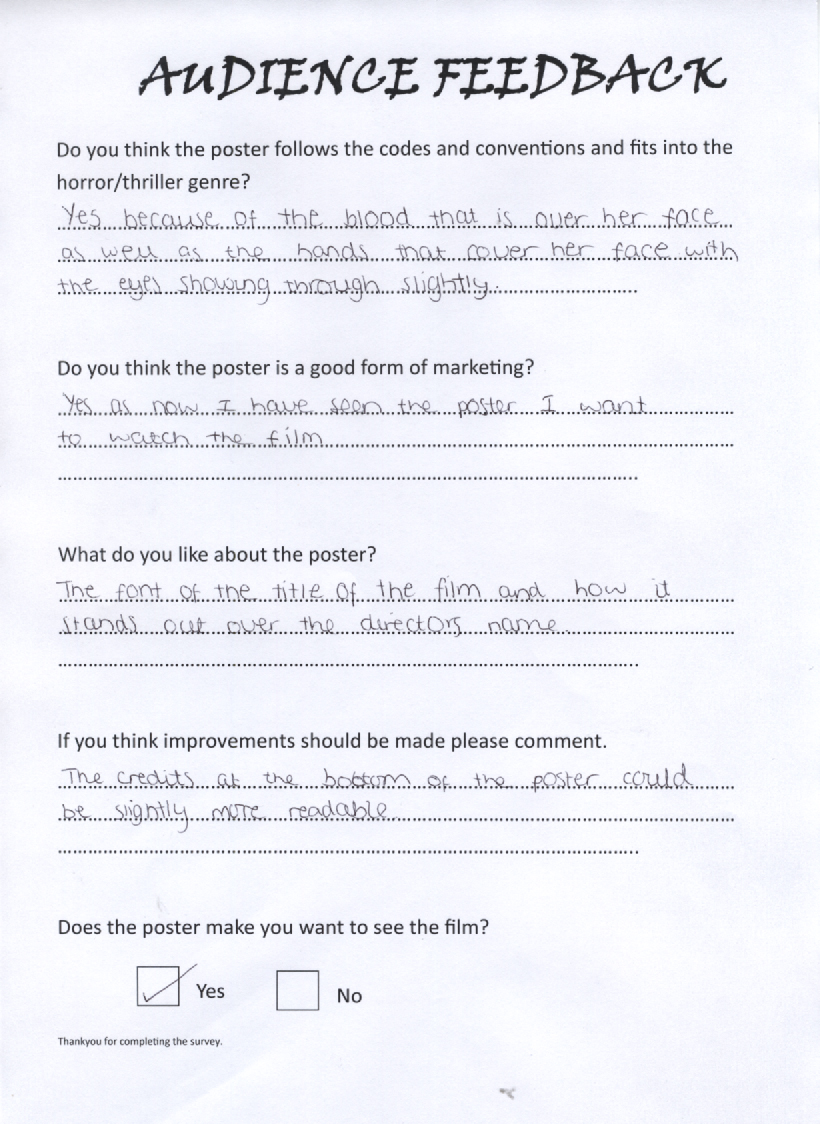 AUDIENCE FEEDBACK
Do you think the poster follows the codes and conventions and fits into the
horror/thriller genre?
Yes because of the blood that is over her face
as well as the hands that cover her face with
the eyes showing through slightly.
Do you think the poster is a good form of marketing?
Yes as now I have seen the poster I want
to watch the film
What do you like about the poster?
The font of the title of the film and how it
stands out over the directors name.
If you think improvements should be made please comment.
The credits at the bottom of the poster could
be slightly more readable
Does the poster make you want to see the film?
Yes No
Thankyou for completing the survey.